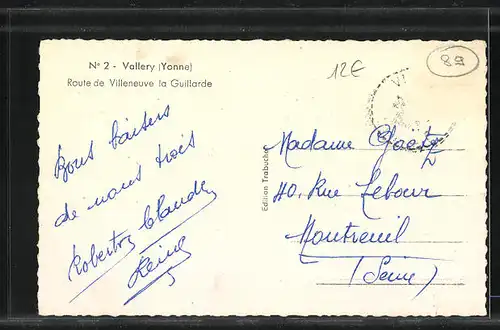 N° 2 - Vallery (Yonne)
Route de Villeneuve la Guillarde
12€
89
Bons baisers
de nous trois
Robertry Claude
Reine
Edition Trabuchet
Madame Goetz
40, Rue Lebour
Montreuil
(Seine)